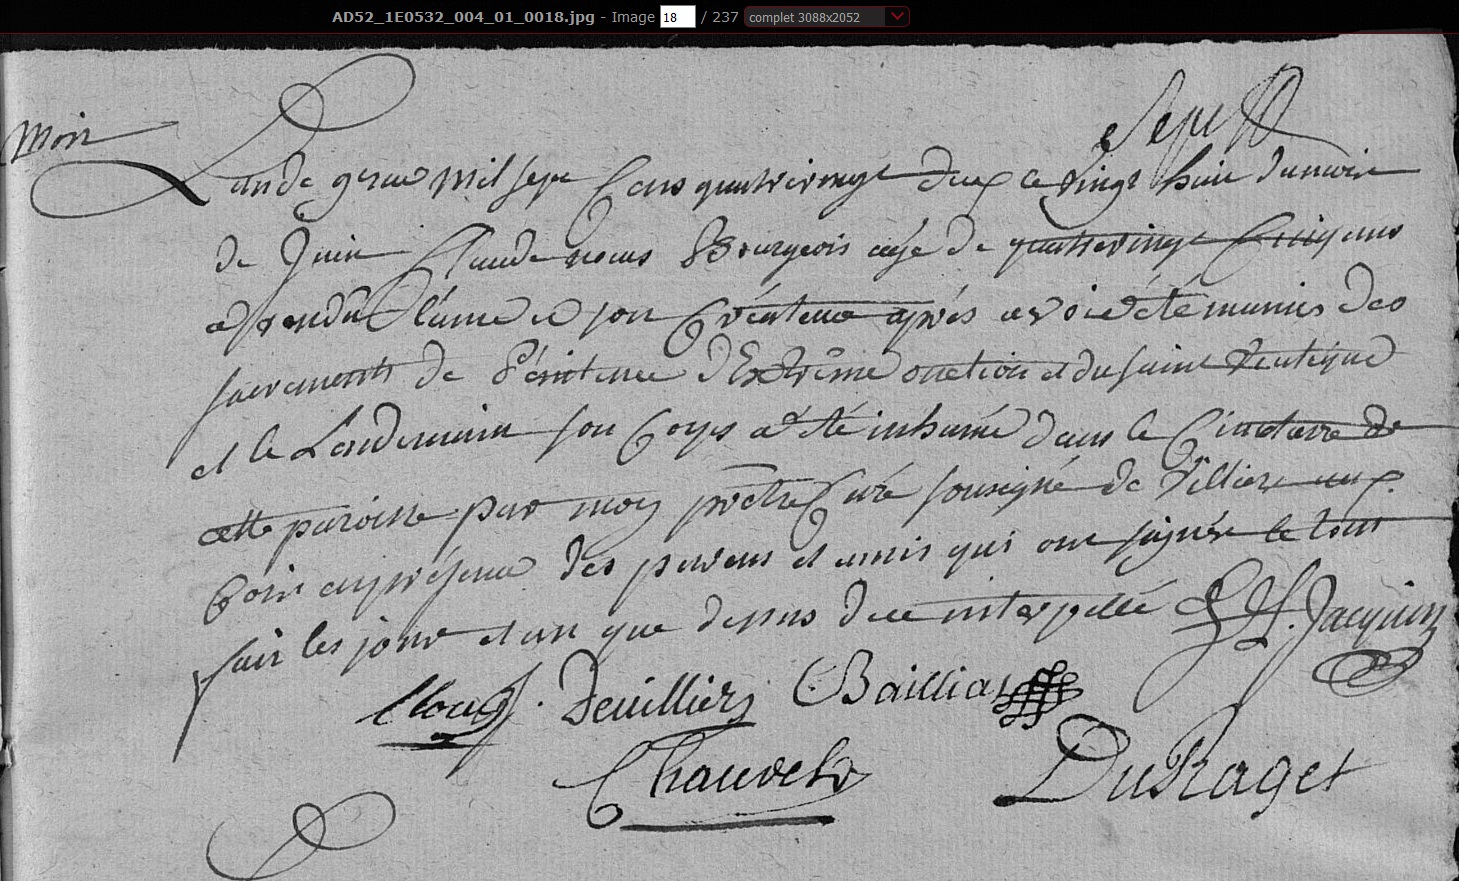 AD52_1E0532_004_01_0018.jpg - Image 18 / 237 complet 3088x2052
Sept
Mort
L'an de grace mil sept cens quatrevingt deux le vingt huit du mois
de Juin Claude nous Bourgeois agé de quattrevingt cinq ans
a rendu l'ame a son Créateur aprés avoir été munis des
sacrements de Pénitence d'Extrême onction et du saint Viatique
et le Lendemain son Corps a été inhumé dans le Cimetiere de
cette paroisse par moy prêtre Curé sousigné de Villiers aux
en présence des parens et amis qui ont signés le tout
fait les jour et an que dessus
Jacquin
Devilliers Bailliat
Chauvelot DuRaget